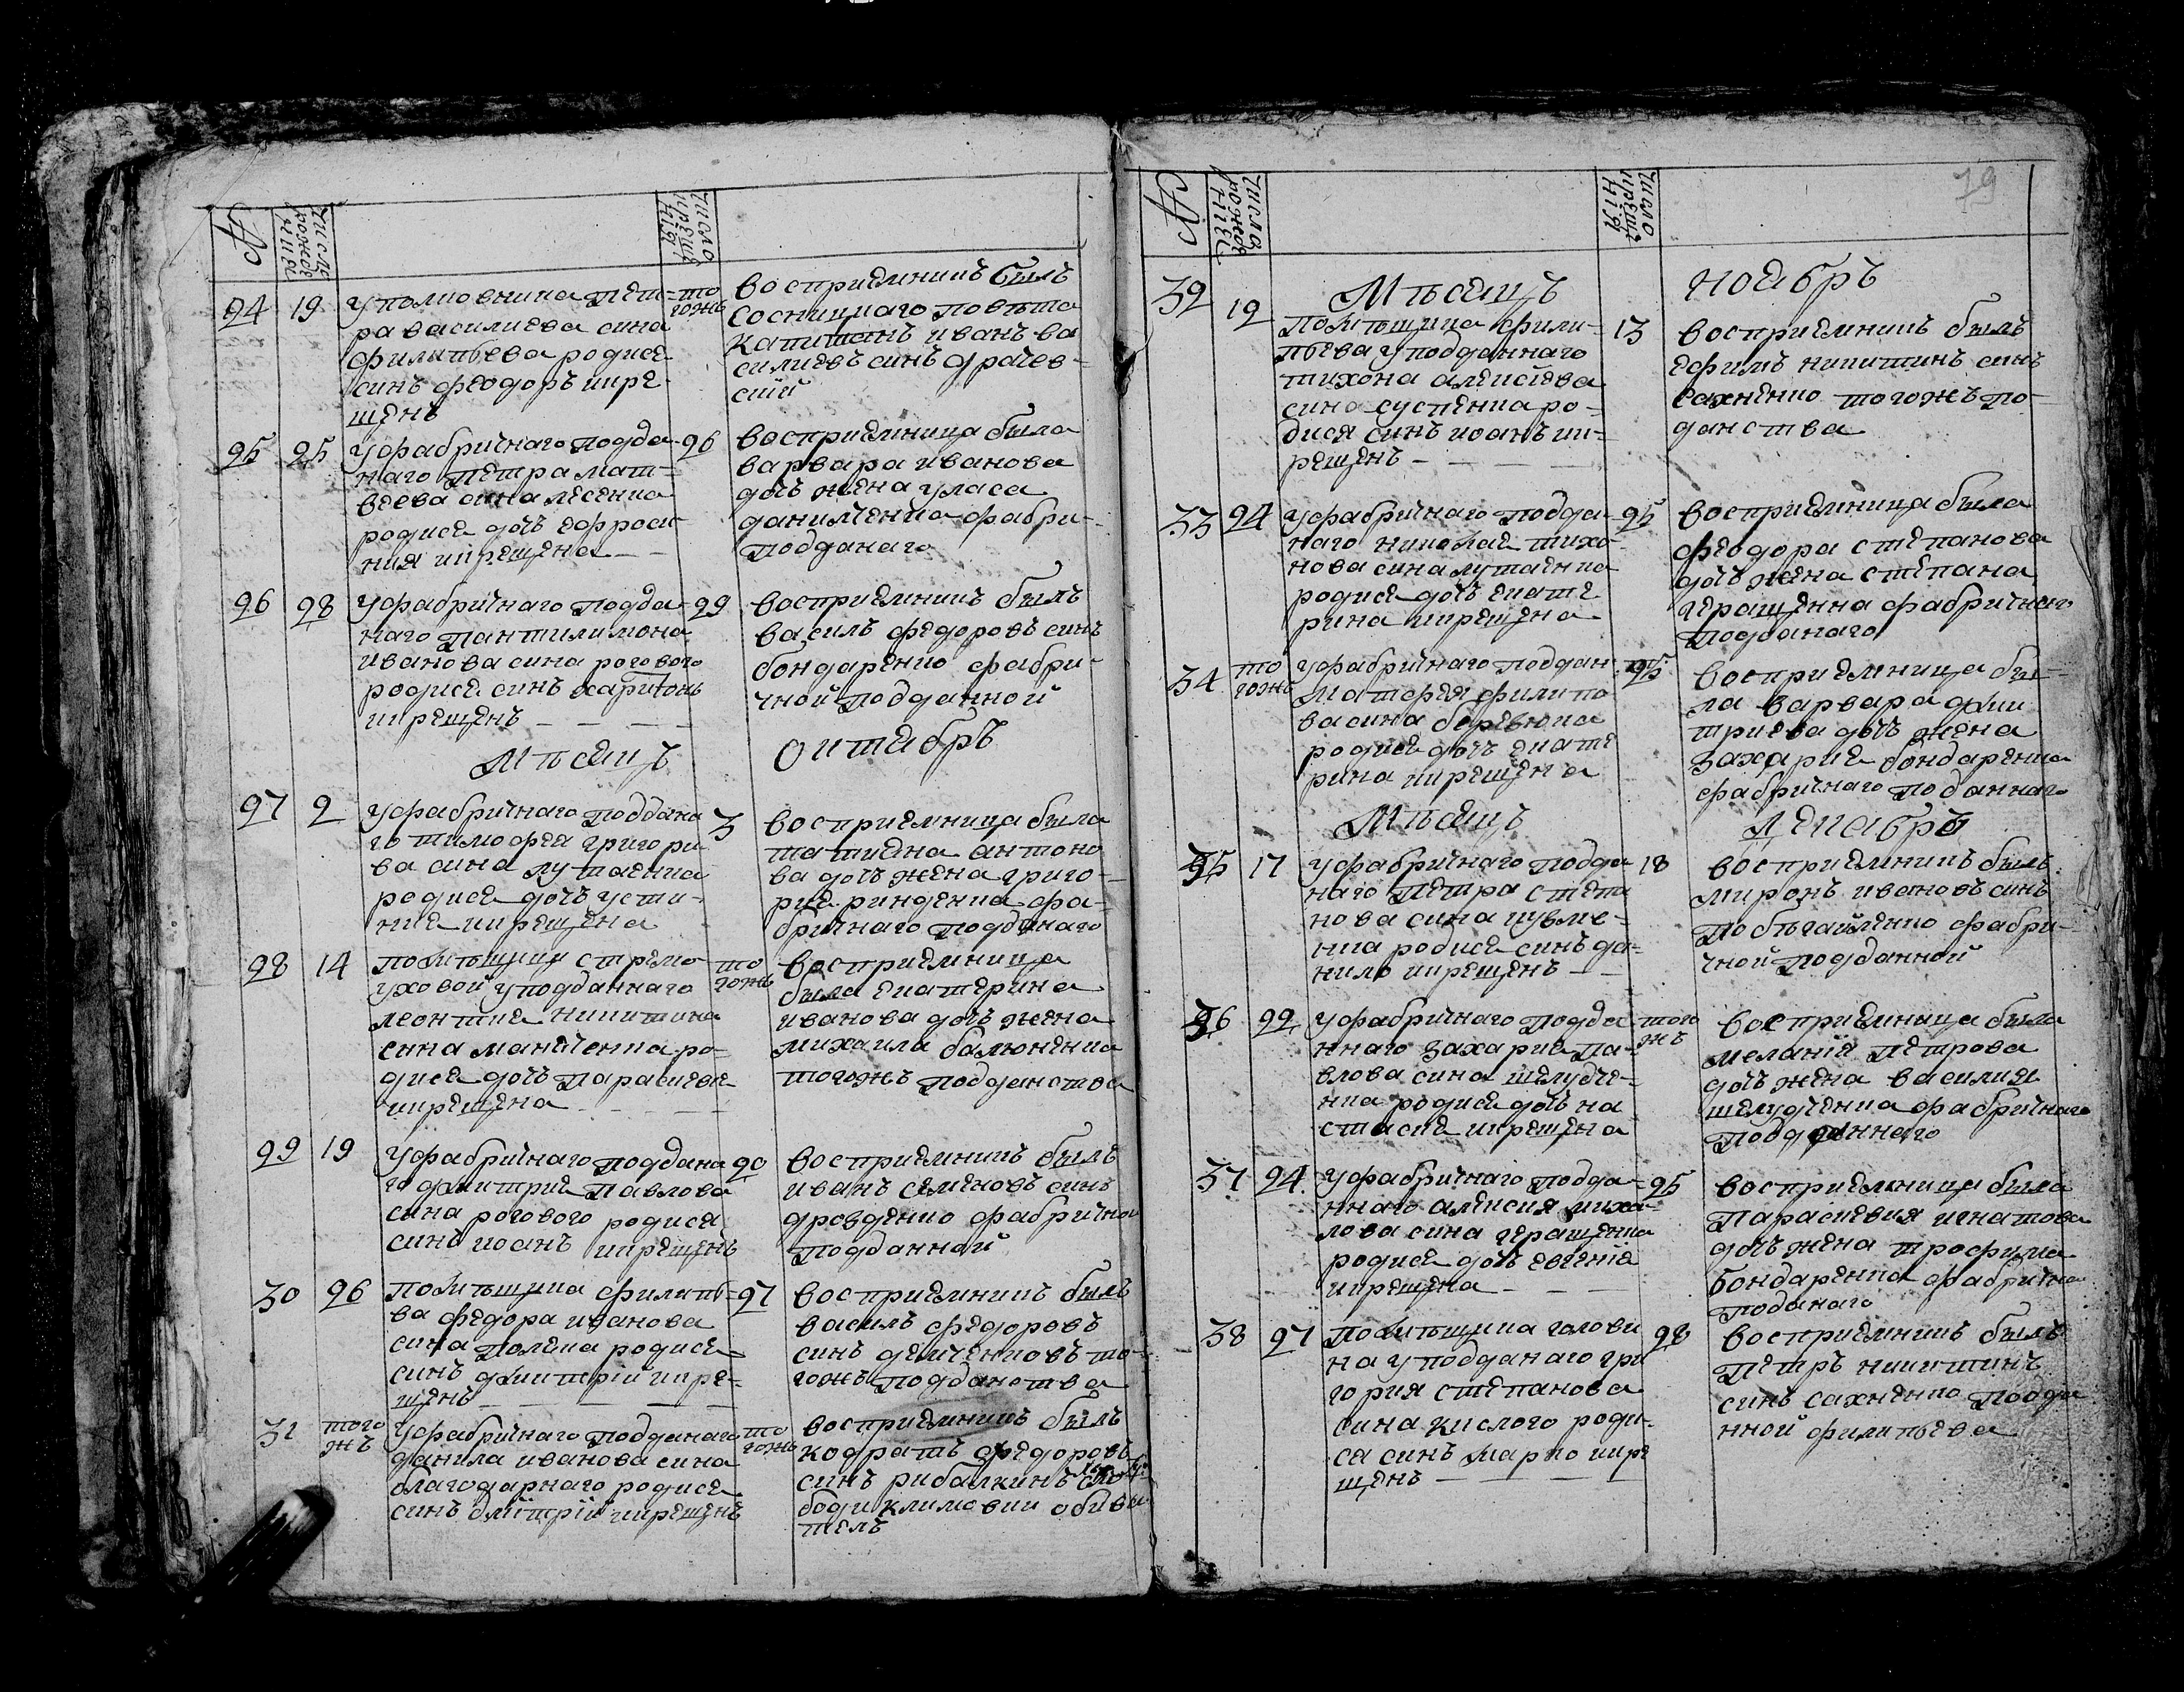 №
Число рождения
Число крещения
24
19
у полковника пет-
ра василиева сина
филипьева родися
синъ феодоръ кре-
щенъ
то
гожъ
восприемникъ былъ
сосницкаго повѣта
капитанъ иванъ ва
силиевъ синъ драчев-
ский
25
25
у фабричнаго подда-
наго петра мат-
веева сина лесенка
родися дочь ефроси-
ния крещена
26
восприемница была
варвара иванова
дочь жена уласа
даниленка фабри-
подданаго
26
28
у фабричнаго подда-
наго пантилимона
иванова сина рогового
родися синъ харитонъ
крещенъ
29
восприемникъ былъ
василь федоровъ синъ
бондаренко фабри-
чной подданной
Мѣсяцъ
октябръ
27
2
у фабричнаго поддана
го тимофея григори
ва сина лутаенка
родися дочь усти-
ния крещена
3
восприемница была
татияна антоно
ва дочь жена григо-
рия ринденка фа-
бричнаго подданаго
28
14
помѣщици стремо
уховой у подданнаго
леонтия никитина
сина манченка ро-
дися дочь параскевия
крещена
то
гожъ
восприемница
была екатерина
иванова дочь жена
михаила балюненка
тогожъ подданства
29
19
у фабричнаго поддана
го дмитрия павлова
сина рогового родися
синъ иоанъ крещенъ
20
восприемникъ былъ
иванъ семеновъ синъ
дровденко фабрично
подданной
30
26
помѣщика филипь-
ва федора иванова
сина полека родися
синъ дмитрий кре-
щенъ
27
восприемникъ былъ
василъ федоровъ
синъ демченковъ то-
гожъ подданства
31
того
жъ
у фабричнаго подданаго
данила иванова сина
благодарнаго родися
синъ дмитрий крещенъ
то
гожъ
восприемникъ былъ
кодратъ федоровъ
синъ рибалкинъ сло
боди климовки обива
телъ
79
№
Числа рождения
Число крещения
32
12
Мѣсяцъ
ноябръ
помѣщика фили-
пьева у подданнаго
тихона алексиева
сина суспенка ро-
дися синъ иоанъ к-
рещенъ
13
восприемникъ былъ
ефимъ никитинъ синъ
сахненко тогожъ по-
данства
33
24
у фабричнаго подда-
наго николая тихо-
нова сина лутаенка
родися дочь екате
рина крещена
25
восприемница была
феодора степанова
дочь жена степана
геращенка фабричнаго
подданаго
34
то
гожъ
у фабричнаго поддан
матфея филипо
ва сина боревюка
родися дочь екате
рина крещена
25
восприемница бы-
ла варвара дми
триева дочь жена
захария бондаренка
фабричнаго поданнаго
Мѣсяцъ
декабръ
35
17
у фабричнаго подда
наго петра степа
нова сина шувле-
нка родися синъ да-
нило крещенъ
18
восприемникъ былъ
миронъ ивановъ синъ
побѣгайленко фабри-
чной подданной
36
22
у фабричнаго подда
ннаго захария па-
влова сина шелудче-
нка родися дочь на
стасия крещена
того
жъ
восприемница была
мелания петрова
дочь жена василия
шелудченка фабричнаго
подданнаго
37
24
у фабричнаго подда-
ннаго алексия миха-
лова сина геращенка
родися дочь евгения
крещена
25
восприемница была
параскевия игнатова
дочь жена трофима
бондаренка фабрична
поданаго
38
27
помѣщика голови
на у подданаго гри
гория степанова
сина кислого роди-
ся синъ марко кре
щенъ
28
восприемникъ былъ
петръ никитинъ
синъ сахненко подда
нной филипьева